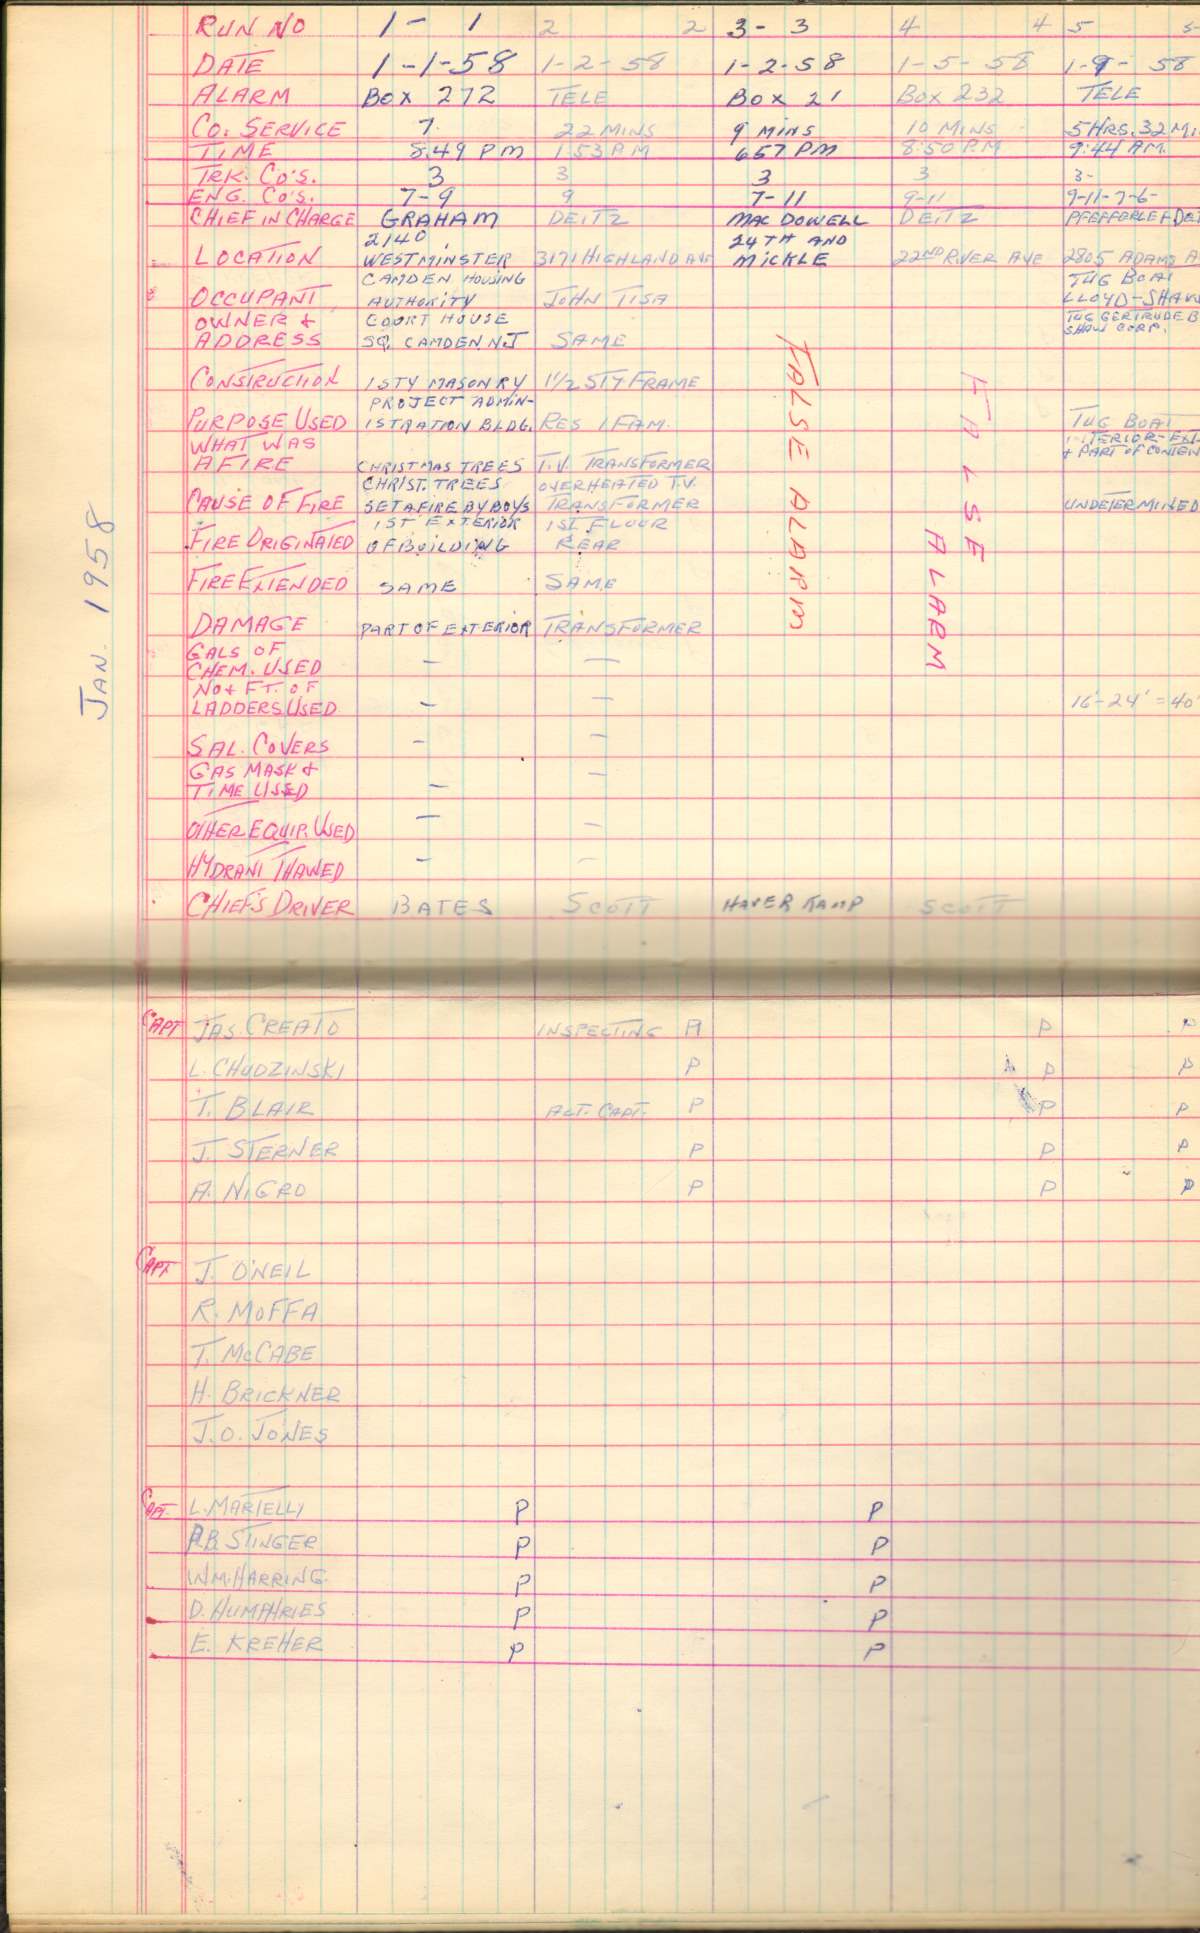 JAN. 1958
RUN NO 1 - 1 2 2 3 - 3 4 4 5 5
DATE 1-1-58 1-2-58 1-2-58 1-5-58 1-9-58
ALARM BOX 272 TELE BOX 21 BOX 232 TELE
CO. SERVICE 7 22 MINS 9 MINS 10 MINS 5 HRS. 32 MI
TIME 8:49 PM 1:53 PM 657 PM 8:50 P.M 9:44 AM.
TRK. CO'S. 3 3 3 3 3-
ENG. CO'S. 7-9 9 7-11 9-11 9-11-7-6-
CHIEF IN CHARGE GRAHAM DEITZ MAC DOWELL DEITZ PFEFFERLE + DEI
LOCATION 2140 WESTMINSTER 3171 HIGHLAND AVE 24TH AND MICKLE 22ND RIVER AVE 2805 ADAMS A
OCCUPANT CAMDEN HOUSING AUTHORITY JOHN TISA TUG BOAT LLOYD-SHAW
OWNER + ADDRESS COURT HOUSE SQ. CAMDEN, NJ SAME TUG GERTRUDE B SHAW CORP.
CONSTRUCTION 1 STY MASONRY 1 1/2 STY FRAME
PURPOSE USED PROJECT ADMIN-ISTRATION BLDG. RES 1 FAM. TUG BOAT
WHAT WAS AFIRE CHRISTMAS TREES T.V. TRANSFORMER INTERIOR-EXT- + PART OF CONTEN
CAUSE OF FIRE CHRIST. TREES SET AFIRE BY BOYS OVERHEATED T.V. TRANSFORMER UNDETERMINED
FIRE ORIGINATED 1ST EXTERIOR OF BUILDING 1ST FLOOR REAR
FIRE EXTENDED SAME SAME
DAMAGE PART OF EXTERIOR TRANSFORMER
FALSE ALARM
FALSE ALARM
GALS OF CHEM. USED — —
NO + FT. OF LADDERS USED — — 16'-24' = 40'
SAL. COVERS — —
GAS MASK + TIME USED — —
OTHER EQUIP. USED — —
HYDRANT THAWED — —
CHIEF'S DRIVER BATES SCOTT HAVERKAMP SCOTT
CAPT JAS. CREATO INSPECTING A P P
L. CHUDZINSKI P P P
T. BLAIR ACT. CAPT. P P P
J. STERNER P P P
A. NIGRO P P P
CAPT J. O'NEIL
R. MOFFA
T. McCABE
H. BRICKNER
J.O. JONES
CAPT. L. MARTELLI P P
B. STINGER P P
WM. HARRING P P
D. HUMPHRIES P P
E. KREHER P P